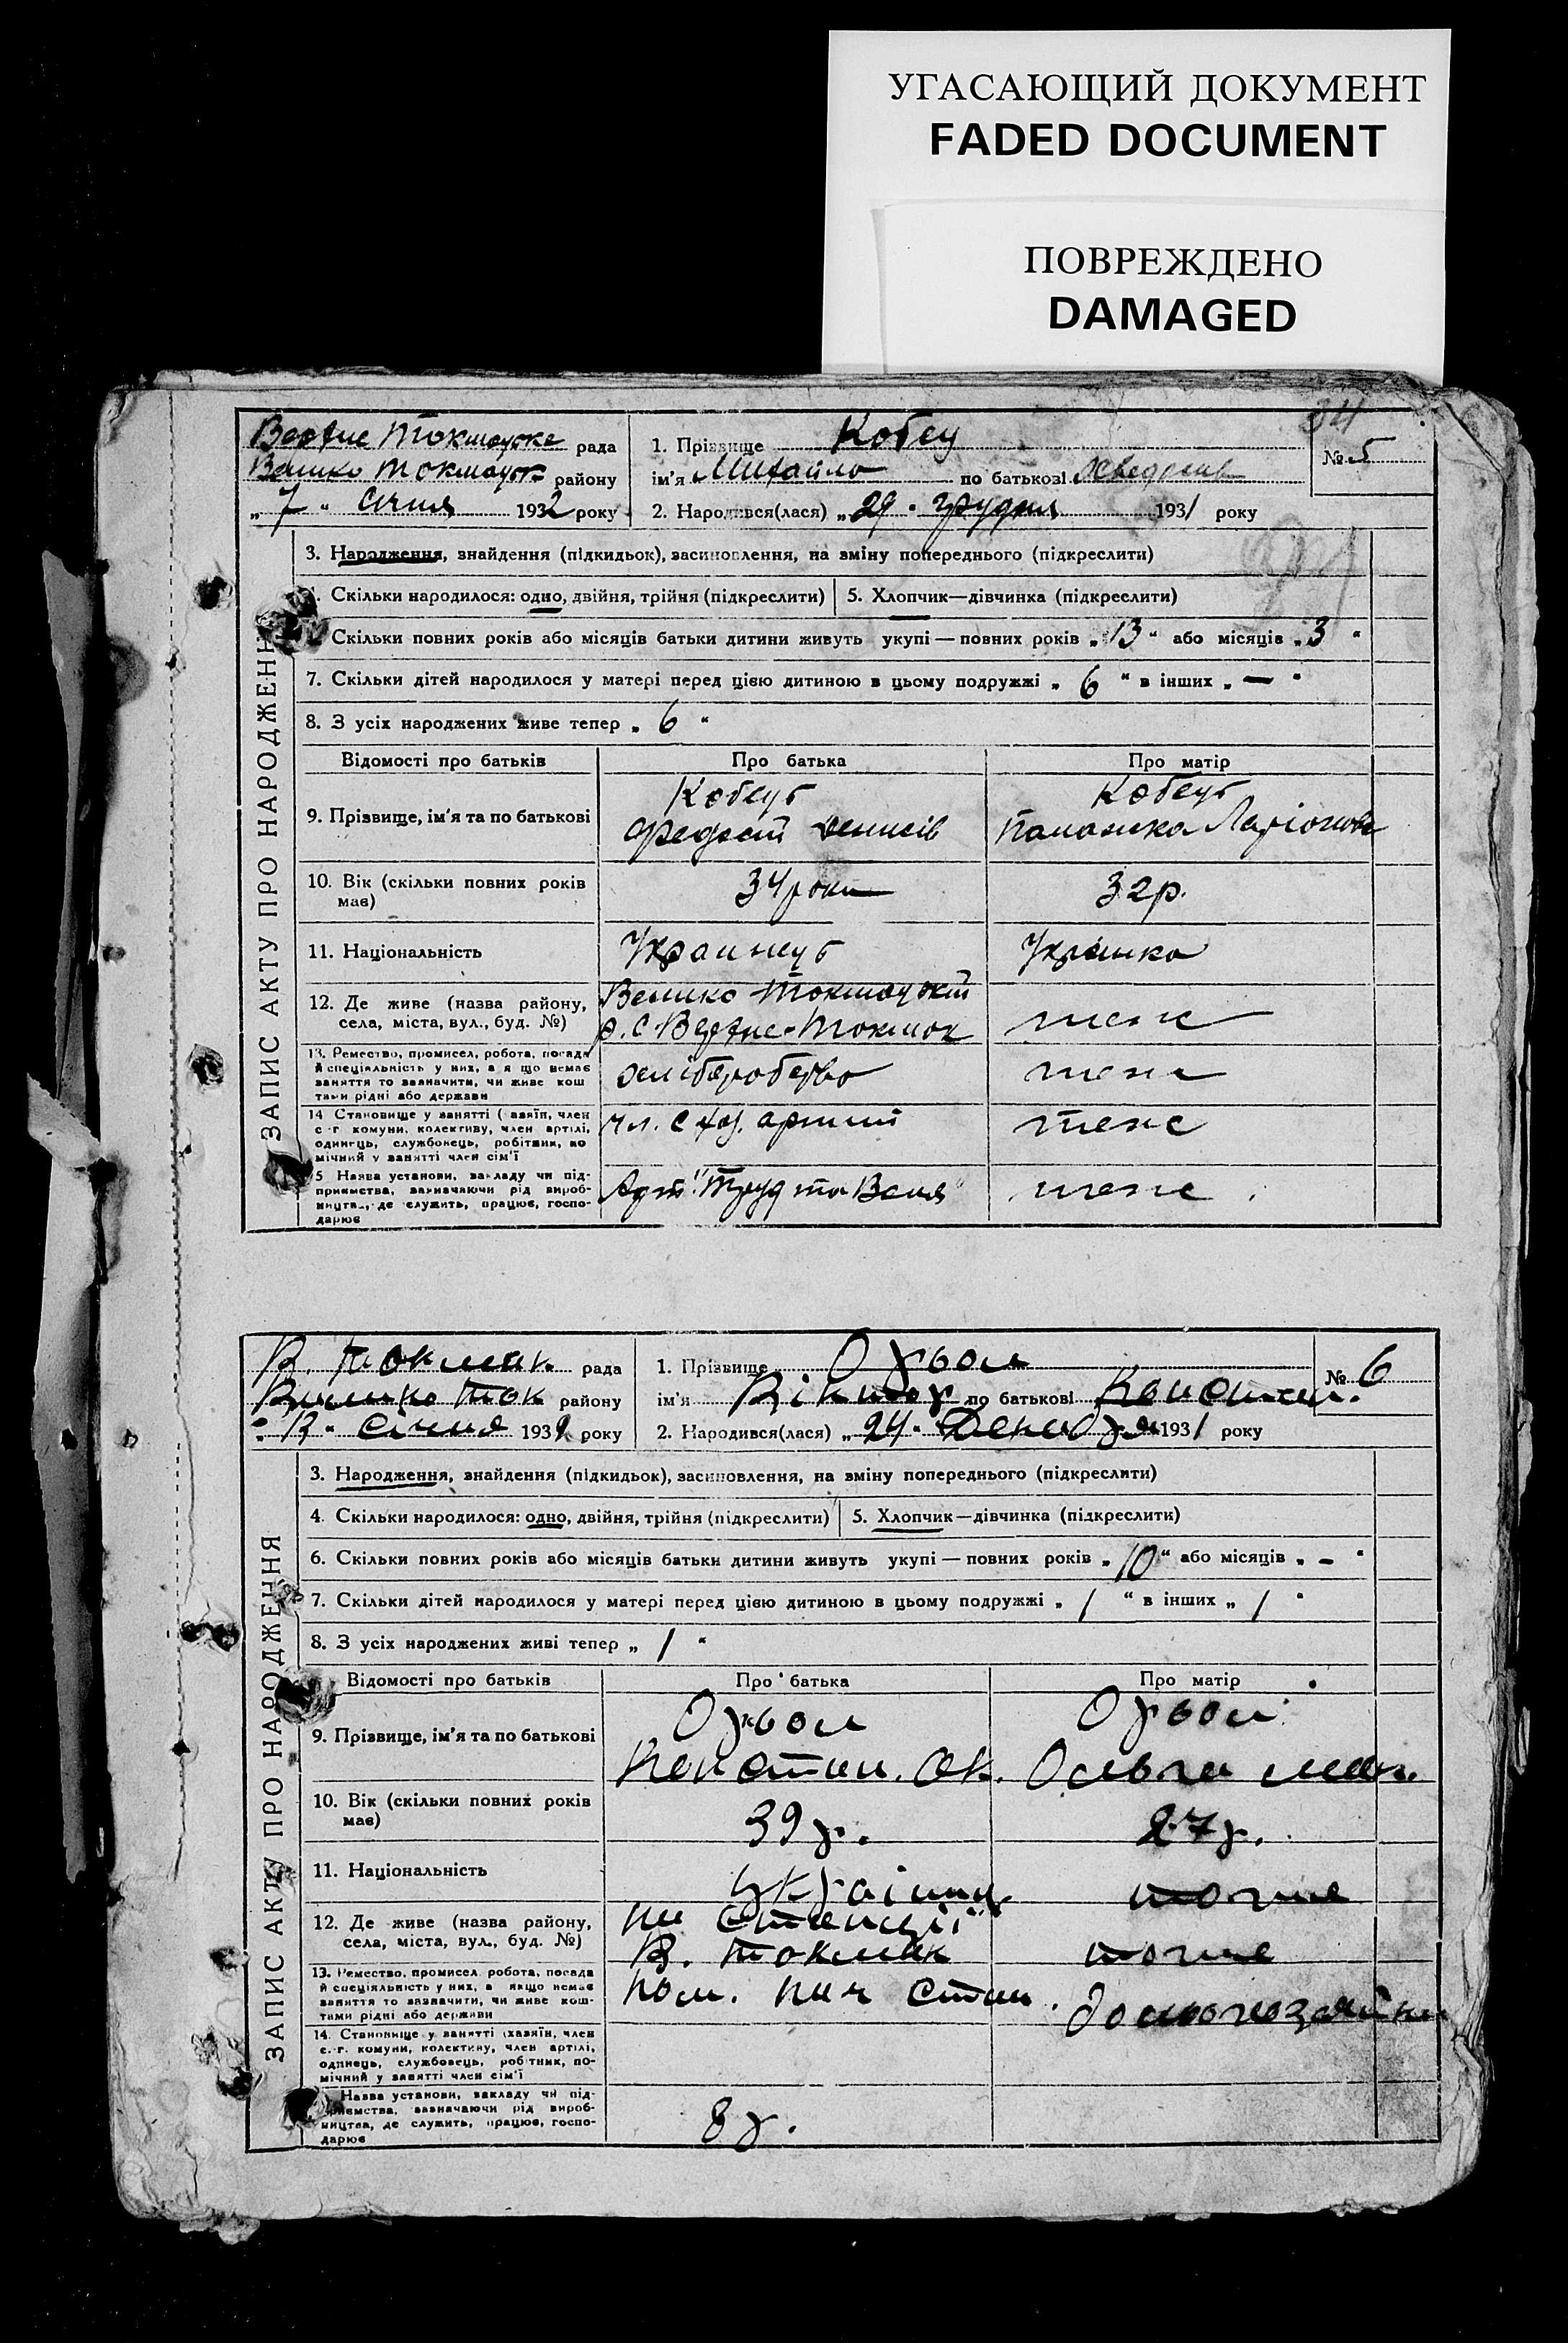 УГАСАЮЩИЙ ДОКУМЕНТ
FADED DOCUMENT
ПОВРЕЖДЕНО
DAMAGED
34
ЗАПИС АКТУ ПРО НАРОДЖЕНН
Верхне Токмацьке рада
Велико Токмацьк району
„ 7 “ січня 1932 року
1. Прізвище Кобец
ім'я Михайло по батькові
2. Народився(лася) „ 29 “ грудня 1931 року
№ 5
3. Народження, знайдення (підкидьок), засиновлення, на зміну попереднього (підкреслити)
Скільки народилося: одно, двійня, трійня (підкреслити)
5. Хлопчик—дівчинка (підкреслити)
Скільки повних років або місяців батьки дитини живуть укупі — повних років „ 13 “ або місяців „ 3 “
7. Скільки дітей народилося у матері перед цією дитиною в цьому подружжі „ 6 “ в інших „ — “
8. З усіх народжених живе тепер „ 6 “
Відомості про батьків Про батька Про матір
9. Прізвище, ім'я та по батькові
Кобець
Федост Денисів
Кобець
Паланжка Ларіонов
10. Вік (скільки повних років має)
34 роки
32 р.
11. Національність
Украинець
Українка
12. Де живе (назва району,
села, міста, вул., буд. №)
Велико Токмацький
р. с. Верхне-Токмок
теж
13. Ремество, промисел, робота, посада
й спеціяльність у них, а я що немає
заняття то зазначити, чи живе кош
тами рідні або держави
хліборобство
теж
14 Становище у занятті ( азяїн, член
с-г комуни, колективу, член артілі,
одинець, службовець, робітник, по
мічний у занятті член сім'ї
чл. с хоз. артілі
теж
5 Назва установи, закладу чи під-
приємства, зазначаючи рід вироб-
ництва, де служить, працює, госпо-
дарює
Арт. "Труд та Земля"
теж
ЗАПИС АКТУ ПРО НАРОДЖЕННЯ
В. Токмак рада
Велико Ток району
січня 1932 року
1. Прізвище
ім'я Віктор по батькові Констан.
2. Народився(лася) „ 24 “ Декабря 1931 року
№ 6
3. Народження, знайдення (підкидьок), засиновлення, на зміну попереднього (підкреслити)
4. Скільки народилося: одно, двійня, трійня (підкреслити)
5. Хлопчик—дівчинка (підкреслити)
6. Скільки повних років або місяців батьки дитини живуть укупі — повних років „ 10 “ або місяців „ - “
7. Скільки дітей народилося у матері перед цією дитиною в цьому подружжі „ / “ в інших „ / “
8. З усіх народжених живі тепер „ / “
Відомості про батьків Про батька Про матір
9. Прізвище, ім'я та по батькові
Констан. Ол.
Ольга
10. Вік (скільки повних років має)
39 р.
27 р.
11. Національність
українц.
тоже
12. Де живе (назва району,
села, міста, вул., буд. №)
на станції
В. Токмак
тоже
13. Ремество, промисел, робота, посада
й спеціяльність у них, а якщо немає
заняття то зазначити, чи живе кош-
тами рідні або держави
пом. нач стан.
домохозяйка
14. Становище у занятті (хазяїн, член
с.-г. комуни, колективу, член артілі,
одинець, службовець, робітник, по-
мічний у занятті член сім'ї
Назва установи, закладу чи під-
приємства, зазначаючи рід вироб-
ництва, де служить, працює, госпо-
дарює
8 р.